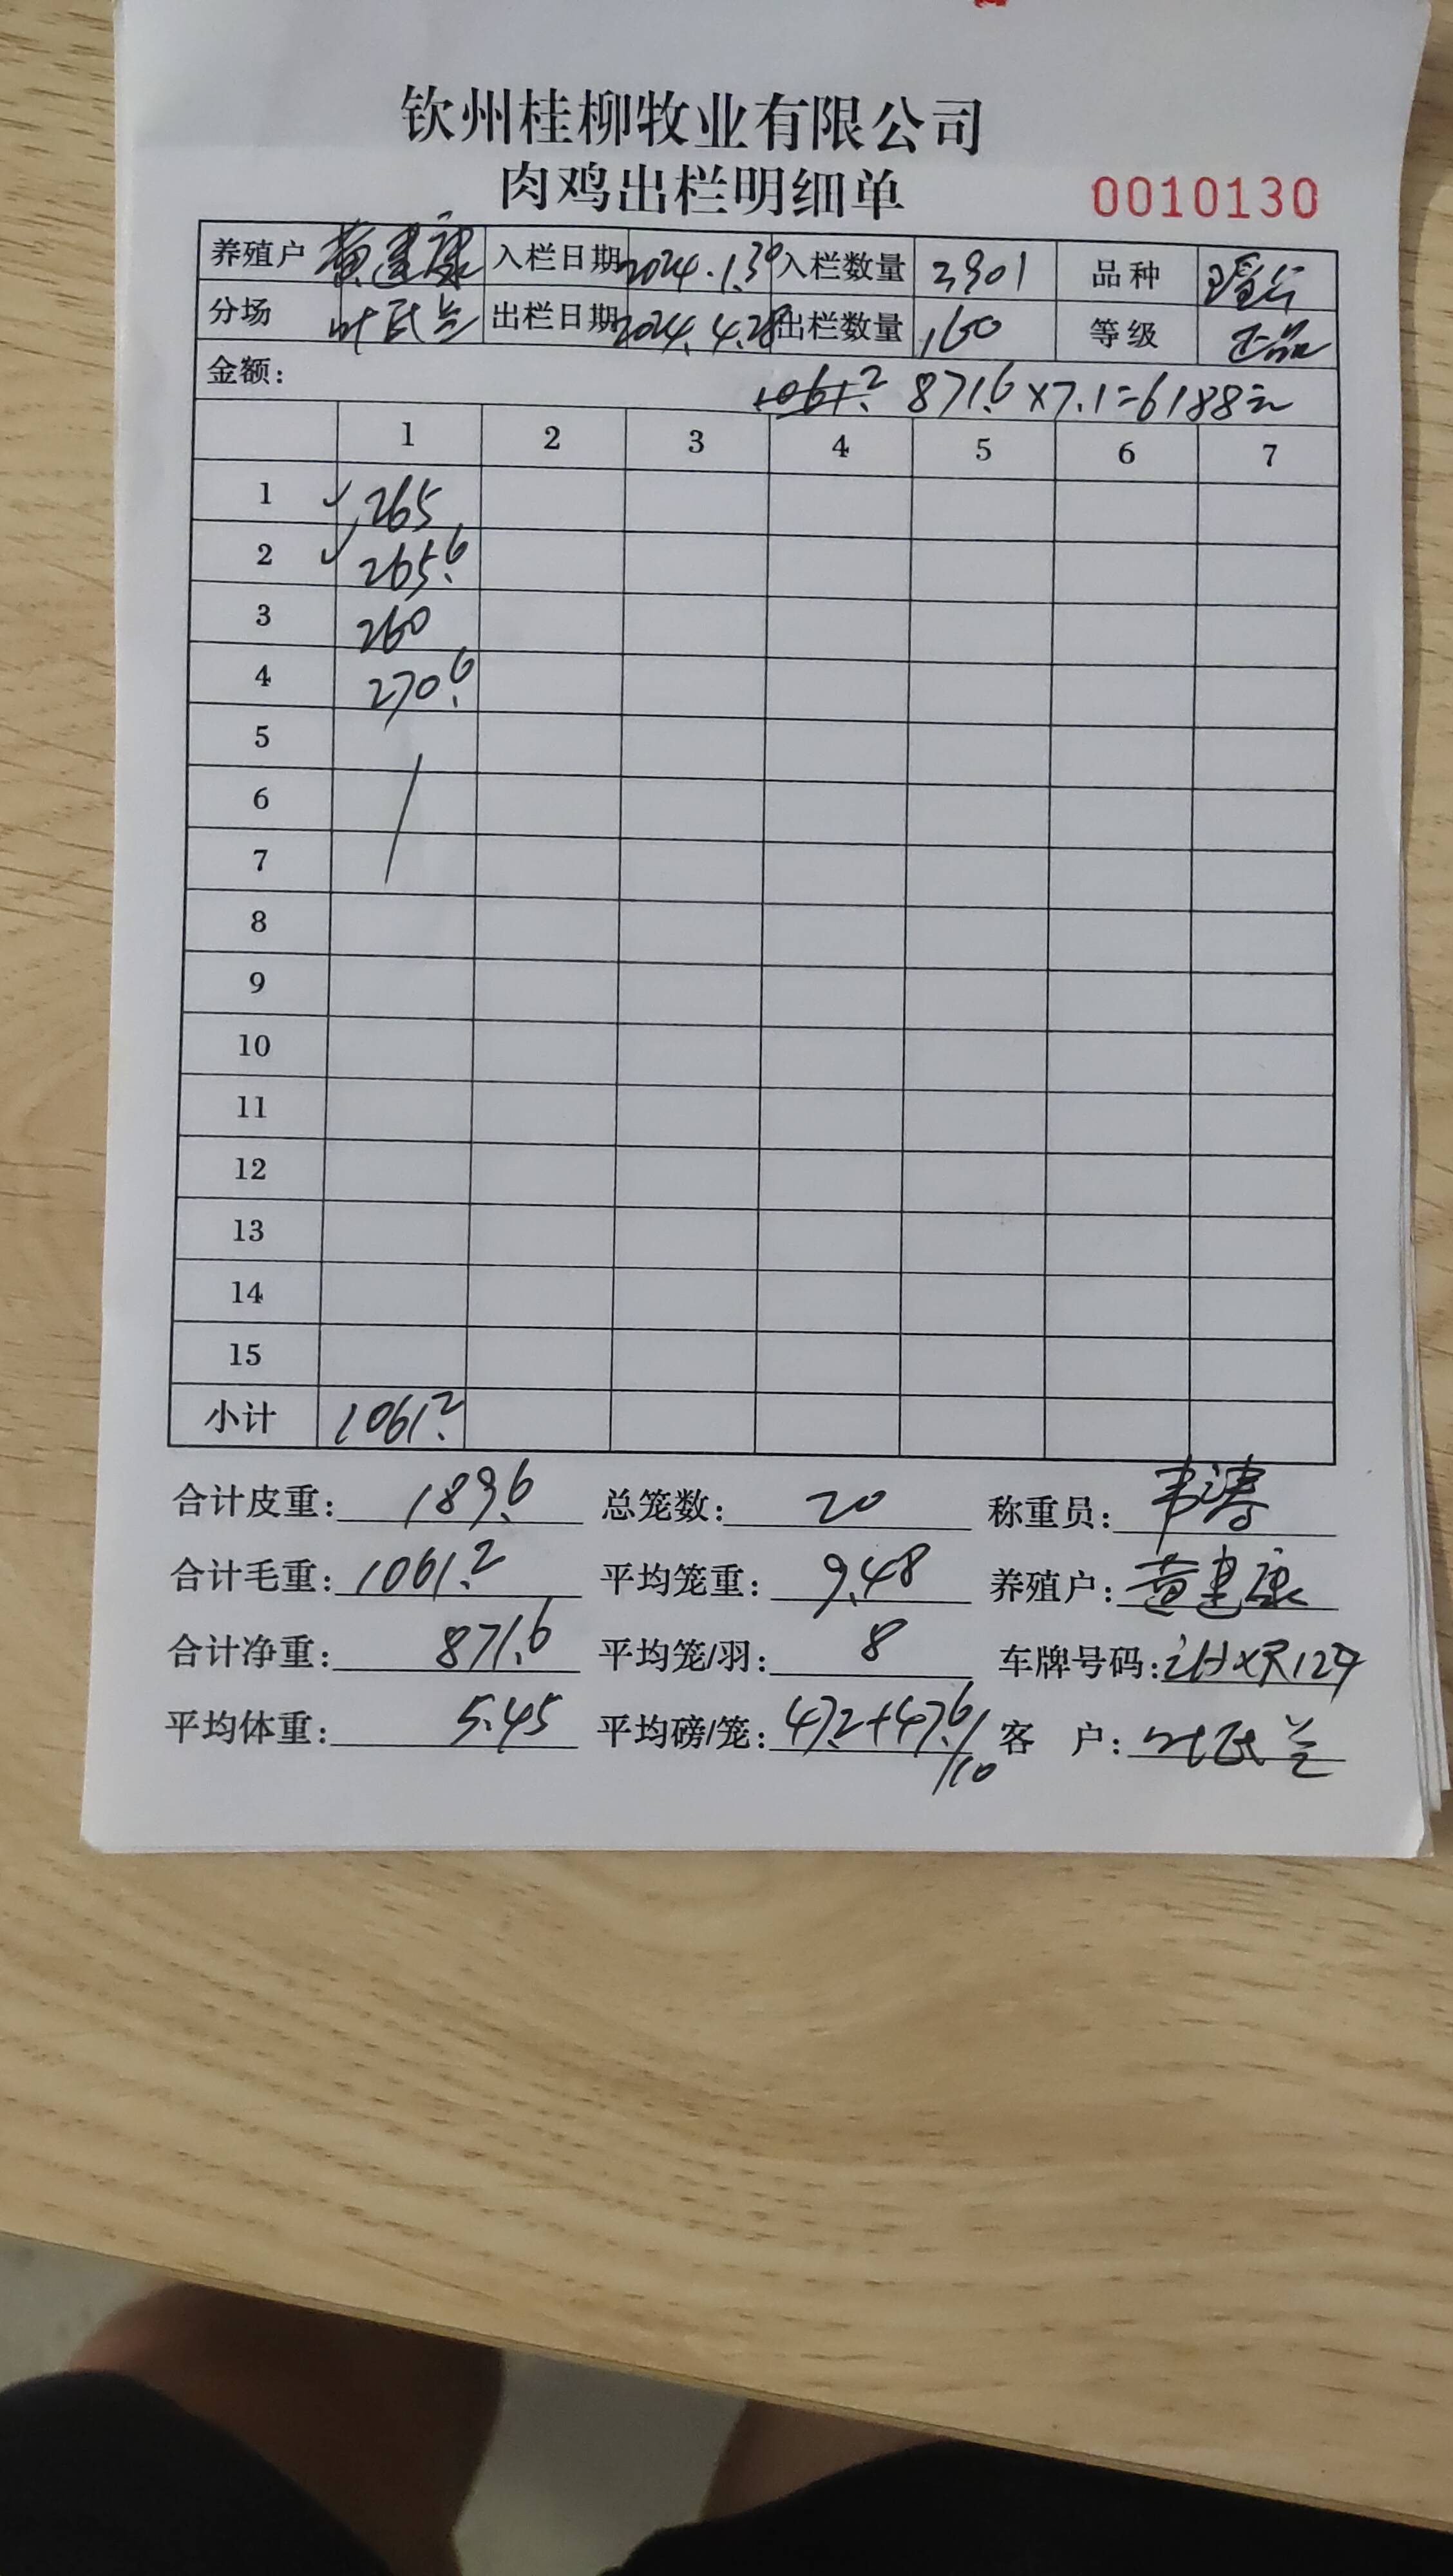 钦州桂柳牧业有限公司
肉鸡出栏明细单 0010130
养殖户 黄建康 入栏日期 2024.1.30 入栏数量 3901 品种
分场 叶氏兰 出栏日期 2024.4.28 出栏数量 160 等级 正品
金额: 1061.2 871.6×7.1=6188元
1 2 3 4 5 6 7
1 265
2 265.6
3 260
4 270.6
5
6
7
8
9
10
11
12
13
14
15
小计 1061.2
合计皮重: 189.6 总笼数: 20 称重员: 韦涛
合计毛重: 1061.2 平均笼重: 9.48 养殖户: 黄建康
合计净重: 871.6 平均笼/羽: 8 车牌号码:
平均体重: 5.45 平均磅/笼: 47.2+47.6/10 客 户: 叶氏兰